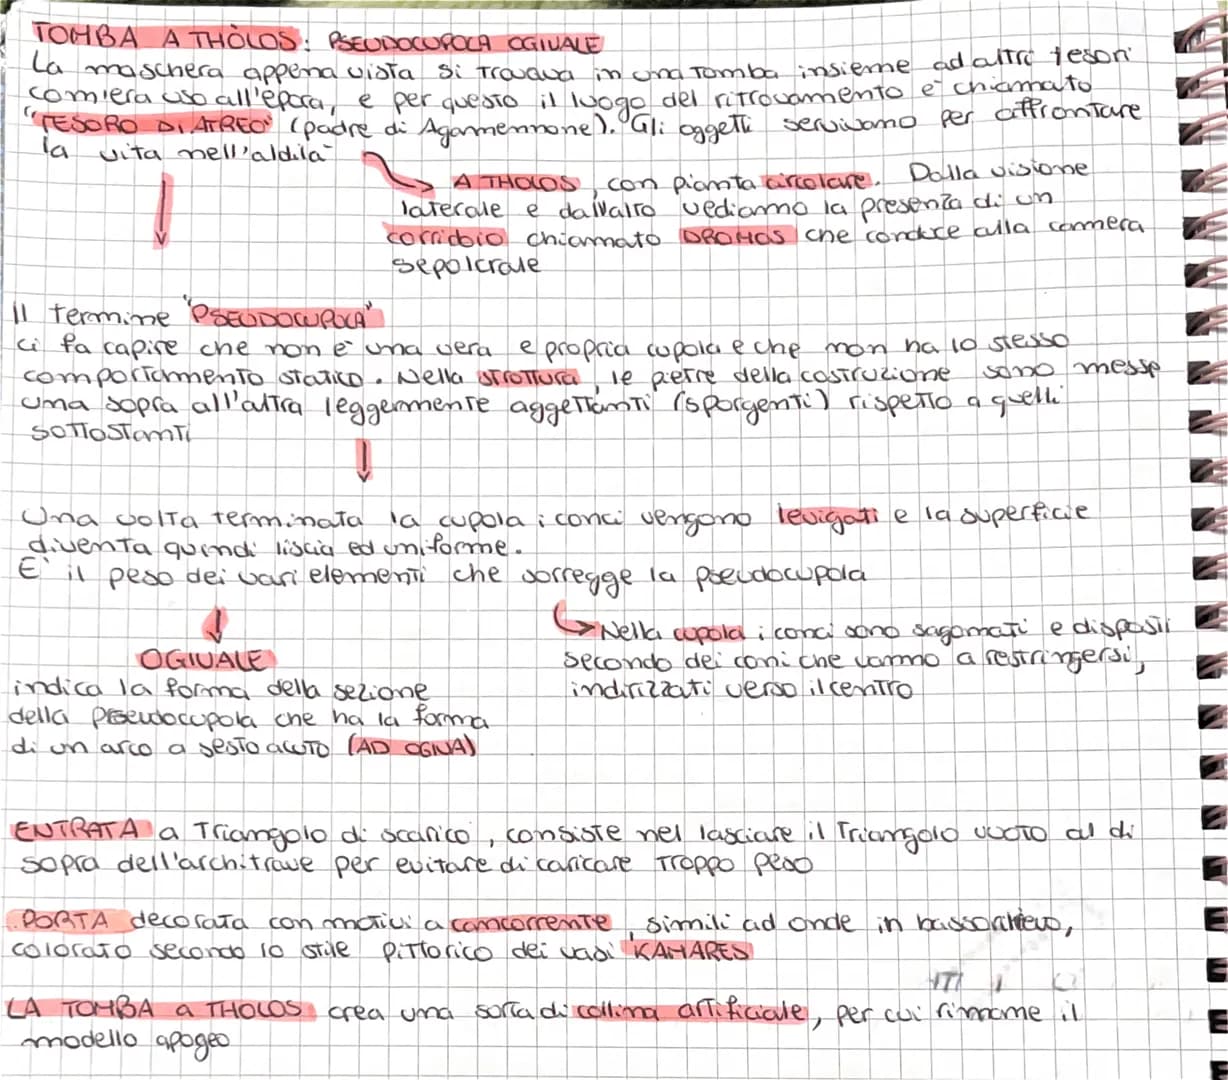 TOMBA A THÒLOS: PSEUDOCUPOLA OGIVALE
La maschera appena vista si trovava in una tomba insieme ad altri tesori
com'era uso all'epoca, e per questo il luogo del ritrovamento è chiamato
"TESORO DI ATREO" (padre di Agamennone). Gli oggetti servivano per affrontare
la vita nell'aldilà
A THOLOS, con pianta circolare. Dalla visione
laterale e dall'alto vediamo la presenza di un
corridoio chiamato DROMOS che conduce alla camera
sepolcrale
Il termine "PSEUDOCUPOLA"
ci fa capire che non è una vera e propria cupola e che non ha lo stesso
comportamento statico. Nella struttura, le pietre della costruzione sono messe
una sopra all'altra leggermente aggettanti (sporgenti) rispetto a quelli
sottostanti
Una volta terminata la cupola i conci vengono levigati e la superficie
diventa quindi liscia ed uniforme.
E' il peso dei vari elementi che sorregge la pseudocupola
Nella cupola i conci sono sagomati e disposti
secondo dei coni che vanno a restringersi,
indirizzati verso il centro
OGIVALE
indica la forma della sezione
della pseudocupola che ha la forma
di un arco a sesto acuto (AD OGIVA)
ENTRATA a triangolo di scarico, consiste nel lasciare il triangolo vuoto al di
sopra dell'architrave per evitare di caricare troppo peso
PORTA decorata con motivi a cancorrente, simili ad onde in bassorilievo,
colorato secondo lo stile pittorico dei vasi KAMARES
LA TOMBA a THOLOS crea una sorta di collina artificiale, per cui rimane il
modello apogeo